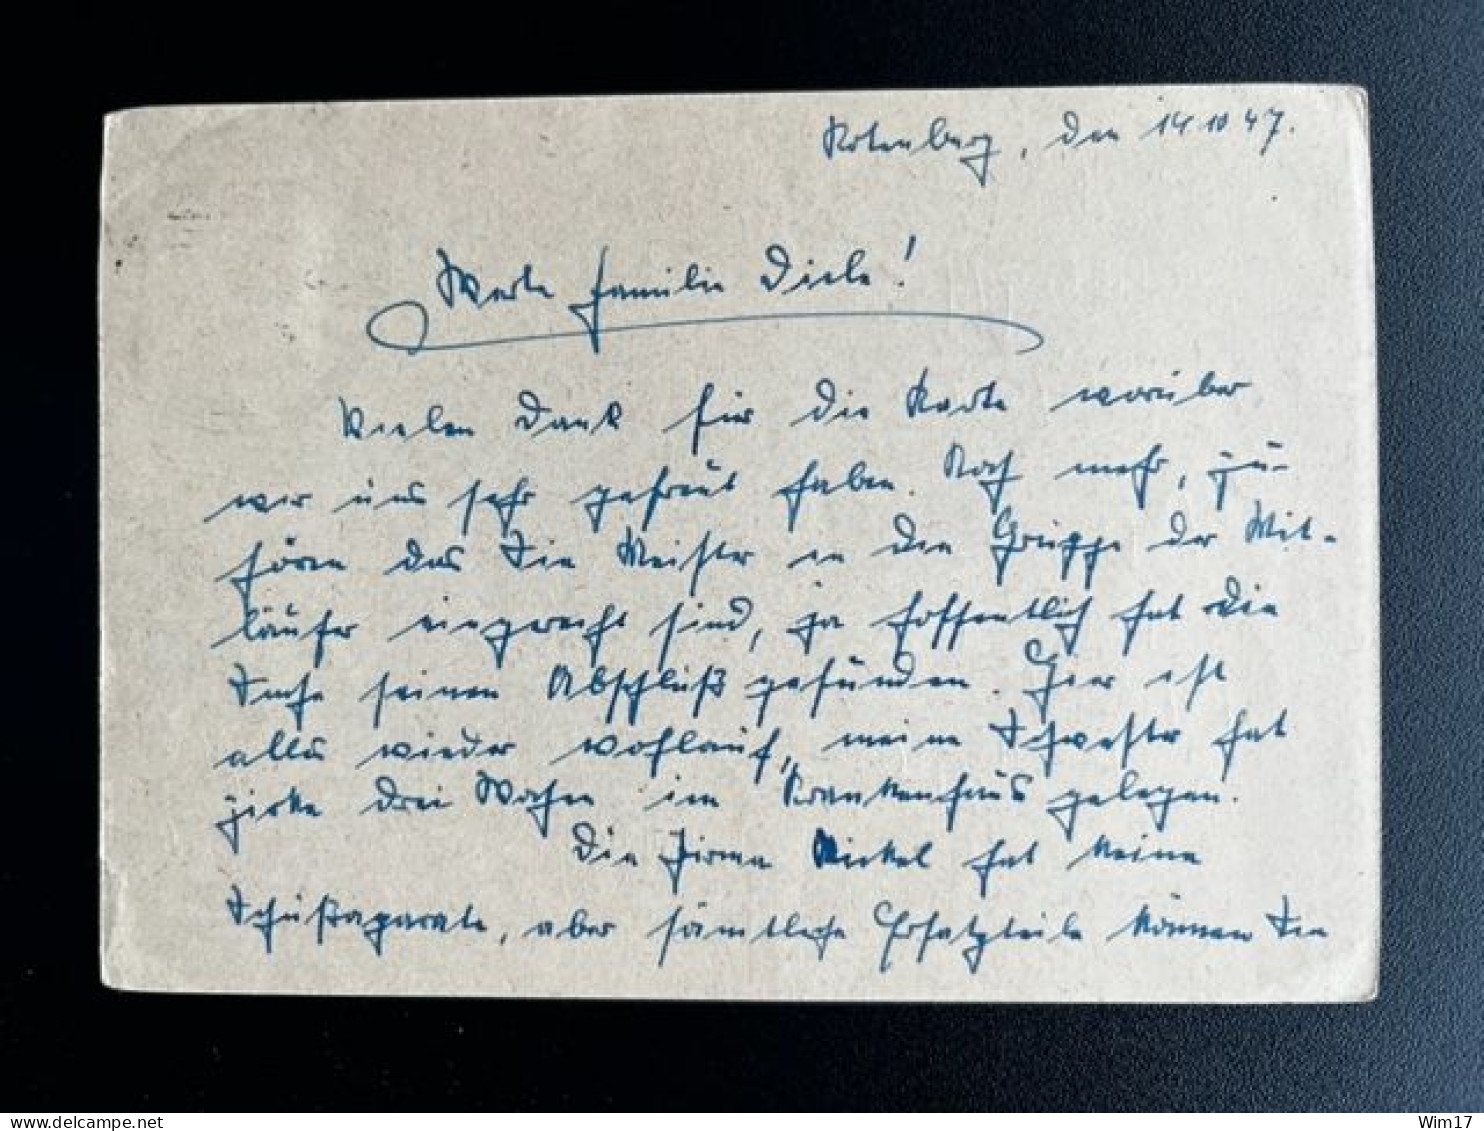 Rotenberg, den 14 10 47.
Werte Familie Diele!
Vielen Dank für die Karte worüber
wir uns sehr gefreut haben. Noch mehr, zu-
hören das Sie Meister in den Gruppe der Mit-
läufer eingereiht sind, ja hoffentlich hat die
Sache seinen Abschluß gefunden. Hier ist
alles wieder wohlauf, meine Schwester hat
zirka drei Wochen im Krankenhaus gelegen.
Die Firma Nickel hat keine
Schußaparate, aber sämtliche Ersatzteile können Sie
delcampe.net
Wim17